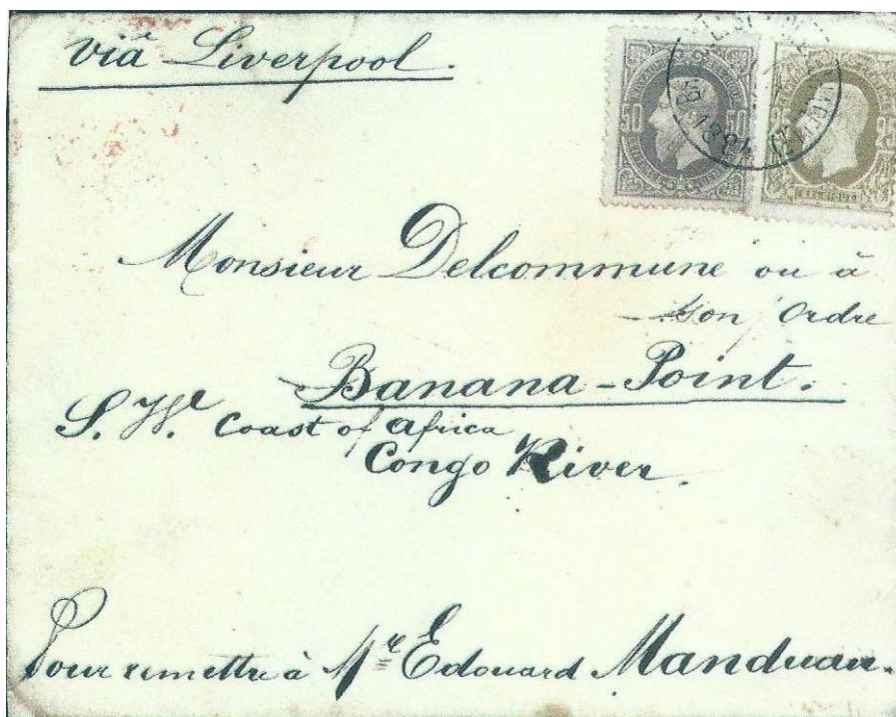 viâ Liverpool.
50 50
25 25
1884
Monsieur Delcommune ou à
son ordre
Banana-Point.
S. W. Coast of Africa
Congo River.
Pour remettre à Mr Edouard Manduau.